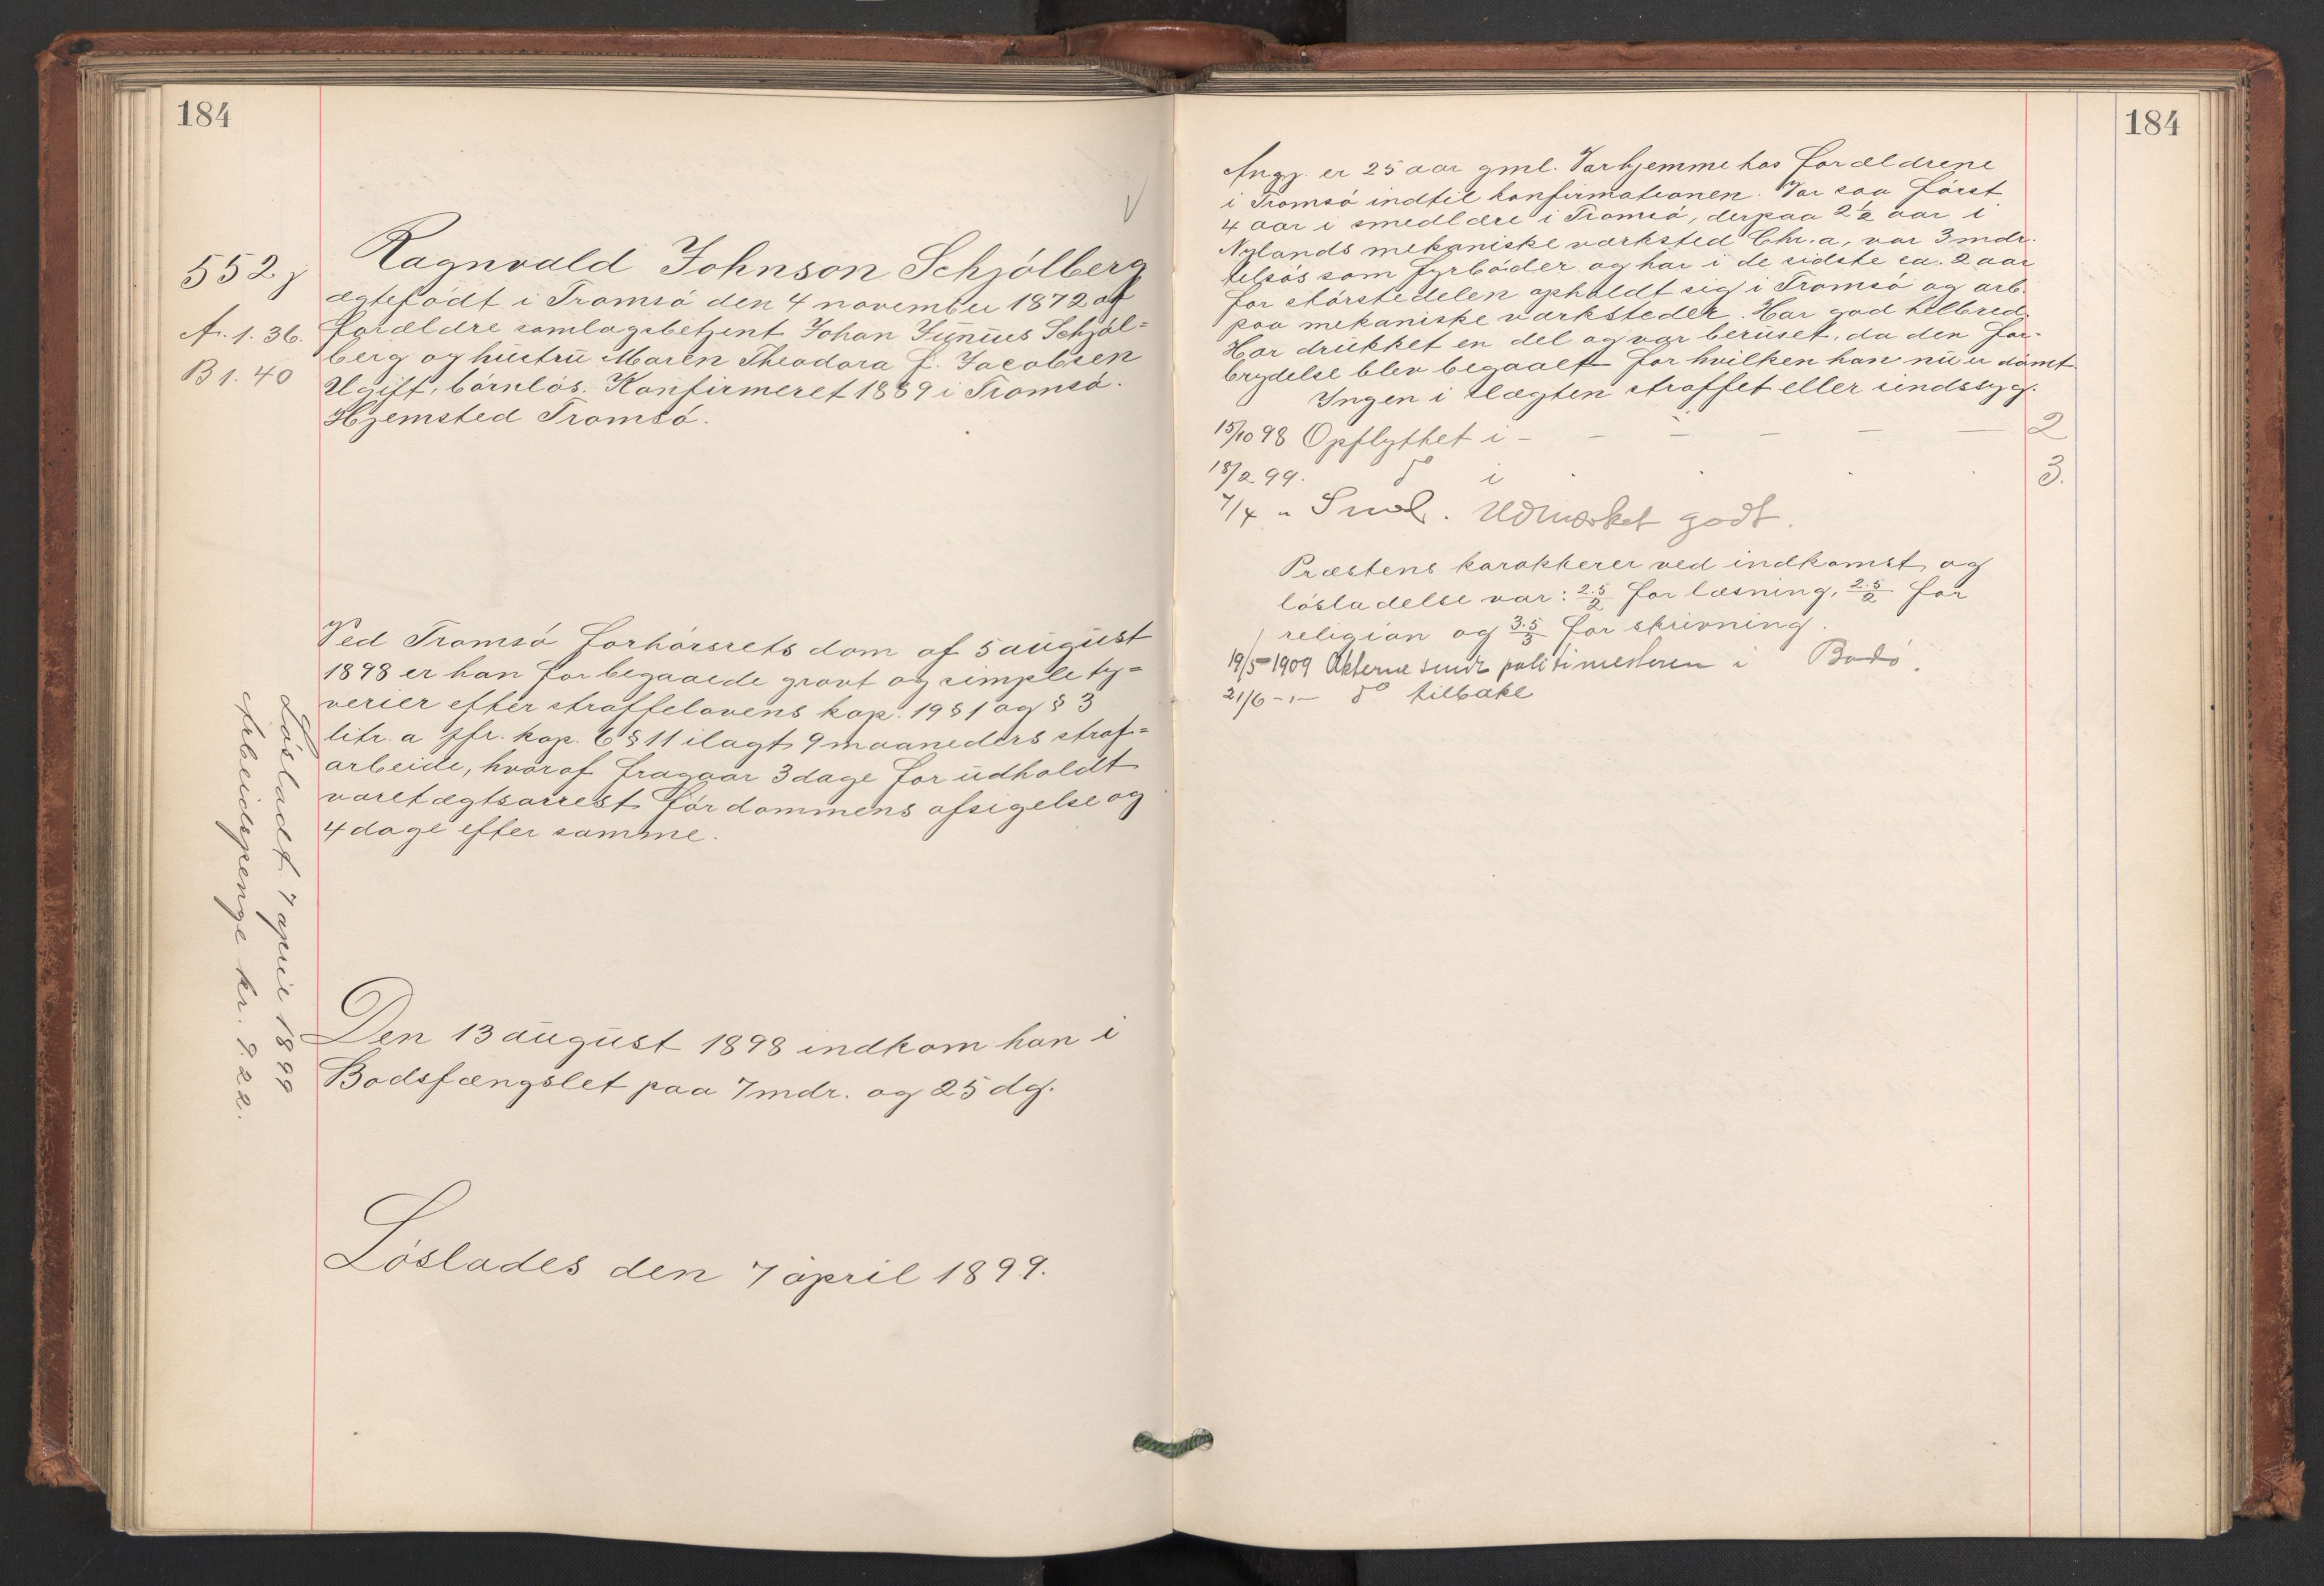 184
552 j
A. 1. 36.
B 1. 40
Ragnvald Johnson Schjölberg
ægtefödt i Tromsö den 4 november 1872 af
forældre samlagsbetjent Johan Junius Schjöl=
berg og hustru Maren Theodora f. Jacobsen
Ugift, börnlös. Konfirmeret 1889 i Tromsö.
Hjemsted Tromsö.
Ved Tromsö forhörsrets dom af 5 august
1898 er han for begaaede grovt og simple ty=
verier efter straffelovens kap. 19 § 1 og § 3
litr. a jfr. kap. 6 § 11 ilagt 9 maaneders straf=
arbeide, hvoraf fragaar 3 dage for udholdt
varetægtsarrest för dommens afsigelse og
4 dage efter samme.
Den 13 august 1898 indkom han i
Bodsfængslet paa 7 mdr. og 25 dg.
Löslades den 7 april 1899.
Lösladt 7 april 1899
Arbeidspenge kr. 9.22.
184
Angj. er 25 aar gml. Var hjemme hos forældrene
i Tromsö indtil konfirmationen. Var saa först
4 aar i smedlære i Tromsö, derpaa 2½ aar i
Nylands mekaniske værksted Chr.a, var 3 mdr.
tilsjös som fyrböder og har i de sidste ca. 2 aar
for störstedelen opholdt sig i Tromsö og arb.
paa mekaniske værksteder. Har god helbred.
Har drukket en del og var beruset, da den for-
brydelse blev begaaet for hvilken han nu er dömt.
Ingen i slægten straffet eller sindssyg.
15/10 98 Opflyttet i - - - - - - 2
18/2 99. do i 3.
7/4 " Smol. Udmærket godt.
Præstens karakterer ved indkomst og
lösladelse var: 2.5/2 for læsning, 2.5/2 for
religion og 3.5/3 for skrivning.
19/5 1909 Akterne sendt politimesteren i Bodö.
21/6 -"- do tilbake